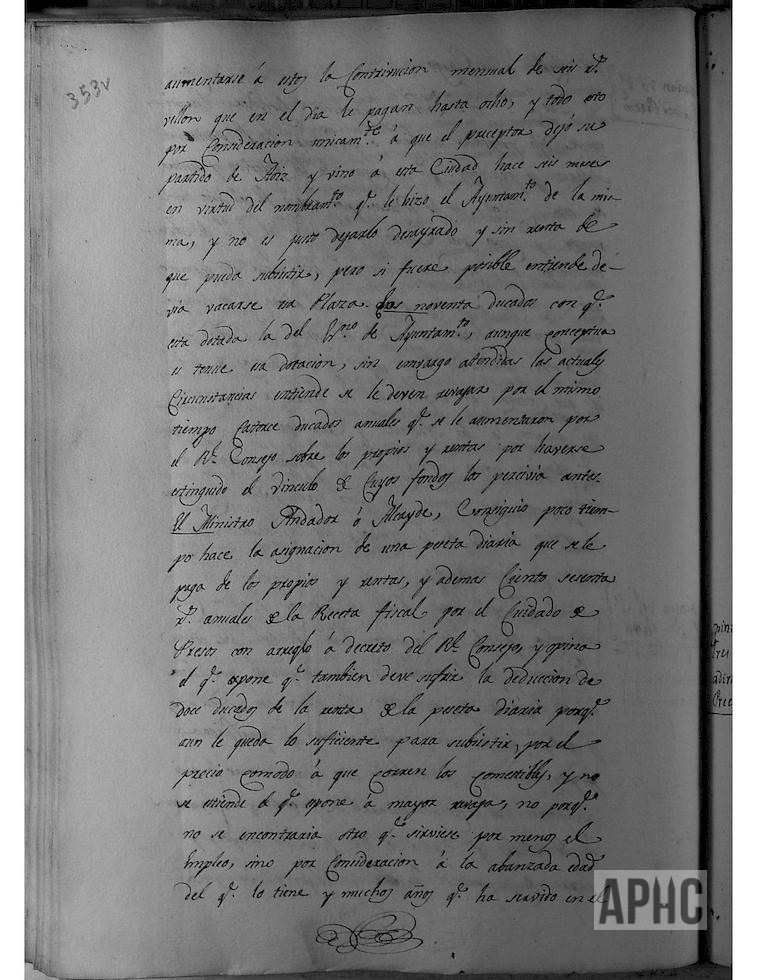 353v
aumentarse á estos la Contrivucion mensual de seis r.s
vellon que en el dia le pagan hasta ocho, y todo esto
por Consideracion unicam.te á que el preceptor dejó su
partido de Aoiz y vino á esta Ciudad hace seis meses
en virtud del nombram.to q.e le hizo el Ayuntam.to de la mis-
ma, y no es justo dejarlo desayrado y sin renta de
que pueda subsistir, pero si fuere posible entiende de-
via vacarse esa Plaza. Los noventa ducados con q.e
esta dotada la del Ess.no de Ayuntam.to, aunque conceptua
es tenue esa dotacion, sin embargo atendidas las actuales
Circunstancias entiende se le deven revajar por el mismo
tiempo Catorce ducados anuales q.e se le aumentaron por
el R.l Consejo sobre los propios y rentas por haverse
extinguido el vinculo de Cuyos fondos los percivia antes.
El Ministro Andador ó Alcayde, Consiguio poco tiem-
po hace la asignacion de una peseta diaria que se le
paga de los propios y rentas, y ademas Ciento sesenta
r.s anuales de la Receta fiscal por el Cuidado de
Presos con arreglo á decreto del R.l Consejo, y opina
el q.e expone q.e tambien deve sufrir la deduccion de
doce ducados de la renta de la peseta diaria porq.e
aun le queda lo suficiente para subsistir, por el
precio comodo á que corren los comestibles, y no
se estiende el q.e expone á mayor revaja, no porq.e
no se encontraria otro q.e sirviese por menos el
Empleo, sino por Consideracion á la abanzada edad
del q.e lo tiene y muchos años q.e ha servido en el
APHC